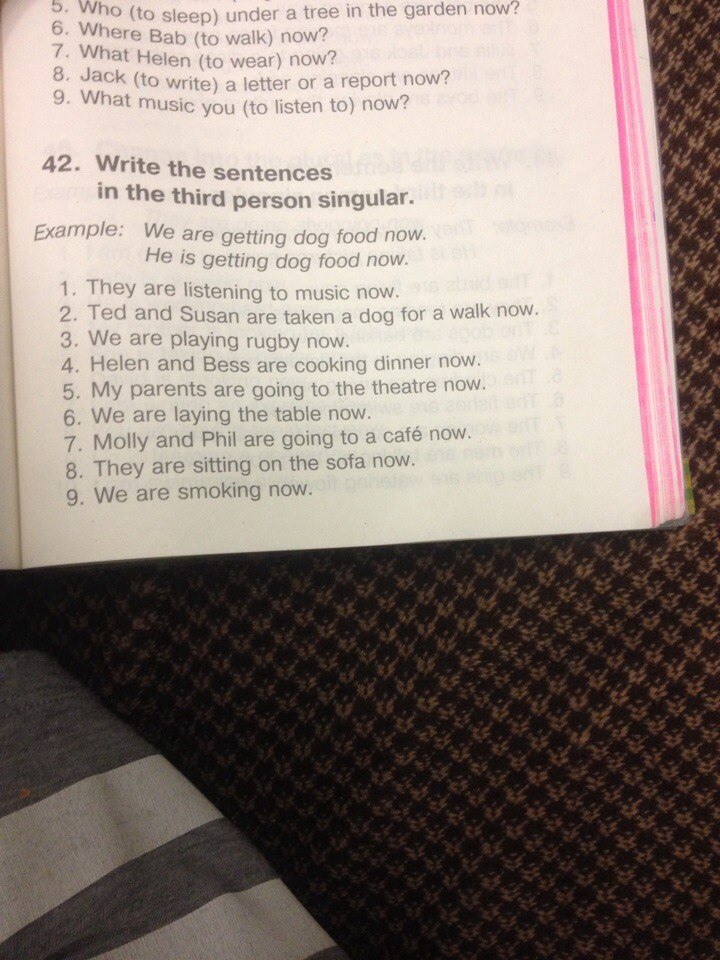 5. Who (to sleep) under a tree in the garden now?
6. Where Bab (to walk) now?
7. What Helen (to wear) now?
8. Jack (to write) a letter or a report now?
9. What music you (to listen to) now?
42. Write the sentences
in the third person singular.
Example: We are getting dog food now.
He is getting dog food now.
1. They are listening to music now.
2. Ted and Susan are taken a dog for a walk now.
3. We are playing rugby now.
4. Helen and Bess are cooking dinner now.
5. My parents are going to the theatre now.
6. We are laying the table now.
7. Molly and Phil are going to a café now.
8. They are sitting on the sofa now.
9. We are smoking now.